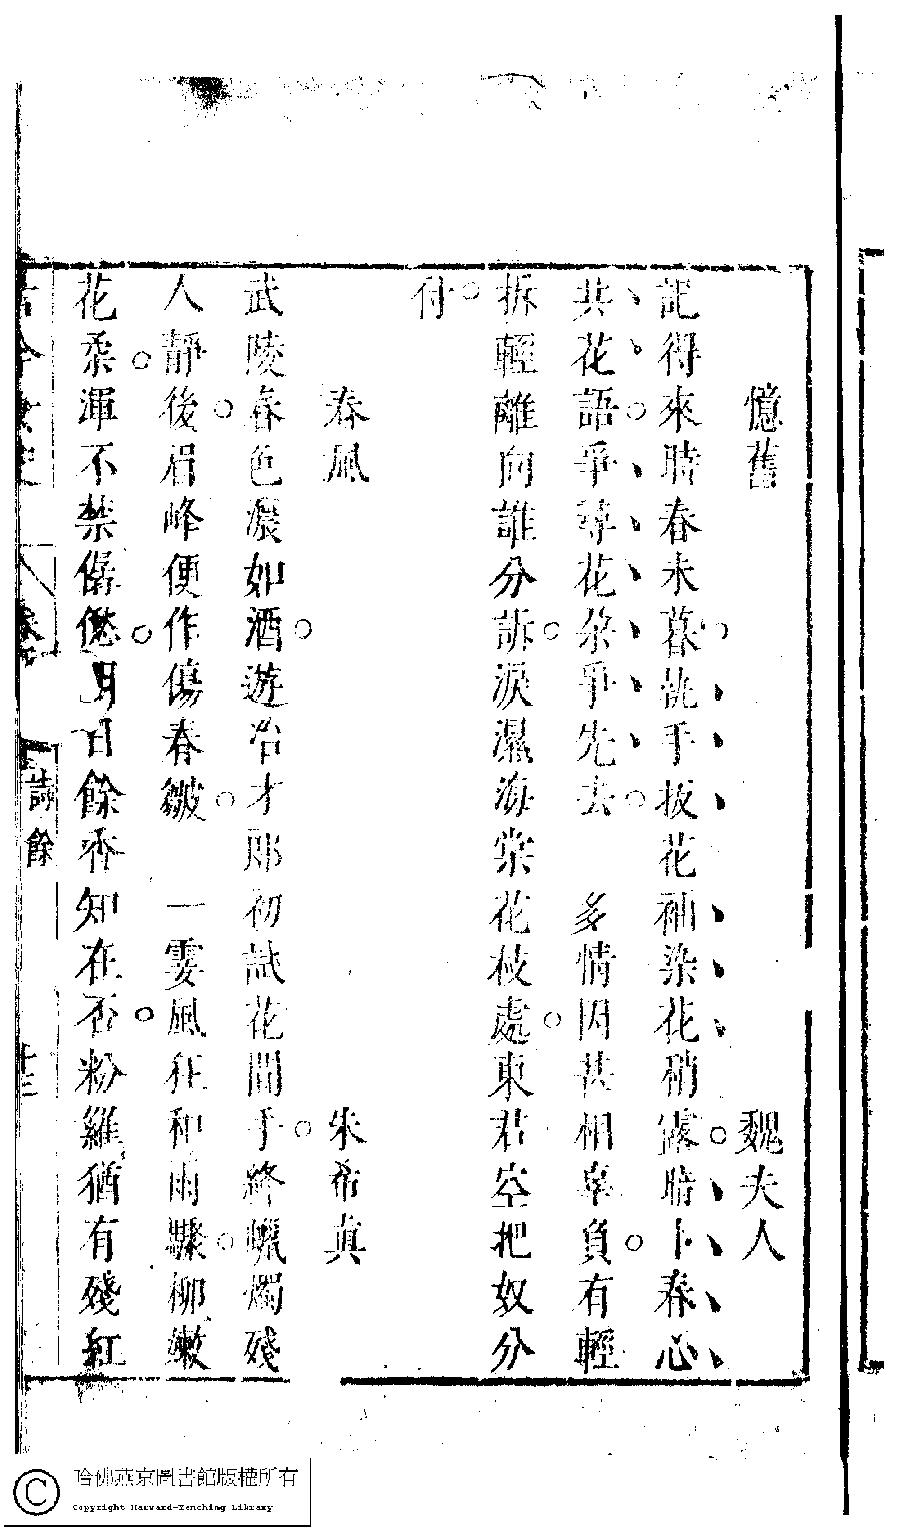 憶舊 魏夫人
記得來時春未暮執手扳花袖染花稍露暗卜春心
共花語爭尋花朶爭先去 多情因甚相辜負有輕
拆輕離向誰分訴淚濕海棠花枝處東君空把奴分
付
春風 朱希真
武陵春色濃如酒遊冶才郎初試花間手絳蠟燭殘
人靜後眉峰便作傷春皺 一霎風狂和雨驟柳嫩
花柔渾不禁僝僽明日餘香知在否粉羅猶有殘紅
古今女史
卷
詩餘
哈佛燕京圖書館版權所有
Copyright Harvard-Yenching Library